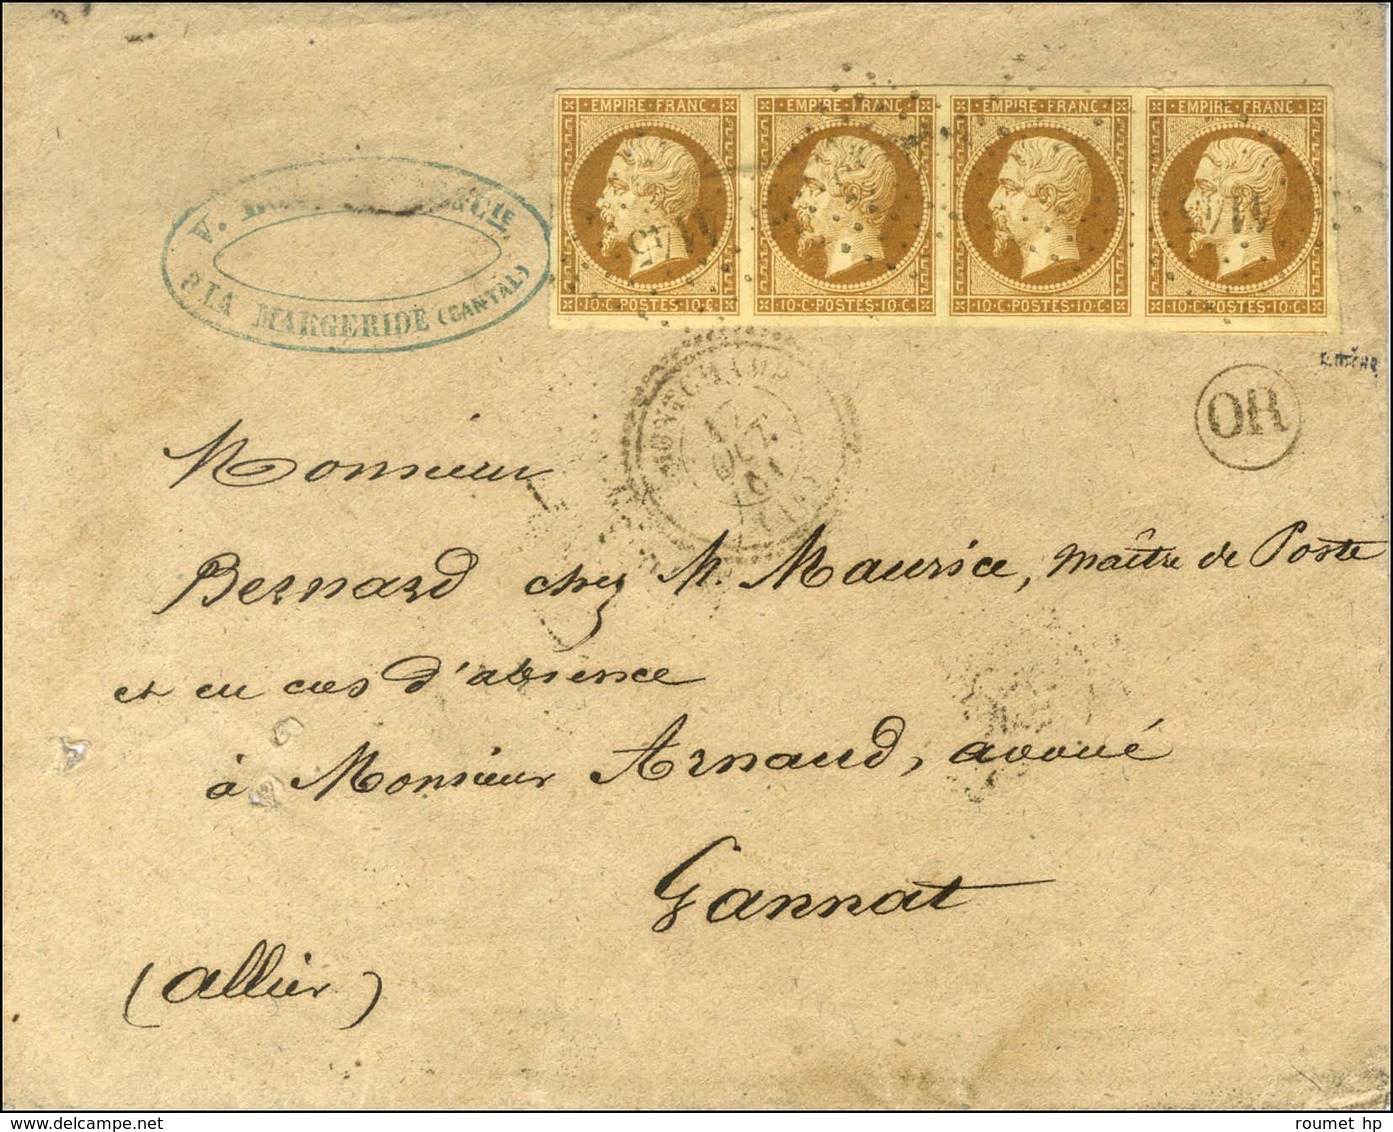 EMPIRE·FRANC· EMPIRE·FRANC· EMPIRE·FRANC· EMPIRE·FRANC·
10·C·POSTES·10·C· 10·C·POSTES·10·C· 10·C·POSTES·10·C· 10·C·POSTES·10·C·
V. & CIE
à LA MARGERIDE (CANTAL)
OR
OCT.
Monsieur
Bernard chez M. Maurice, maître de Poste
et en cas d'absence
à Monsieur Arnaud, avoué
Gannat
(allier)
roumet hp